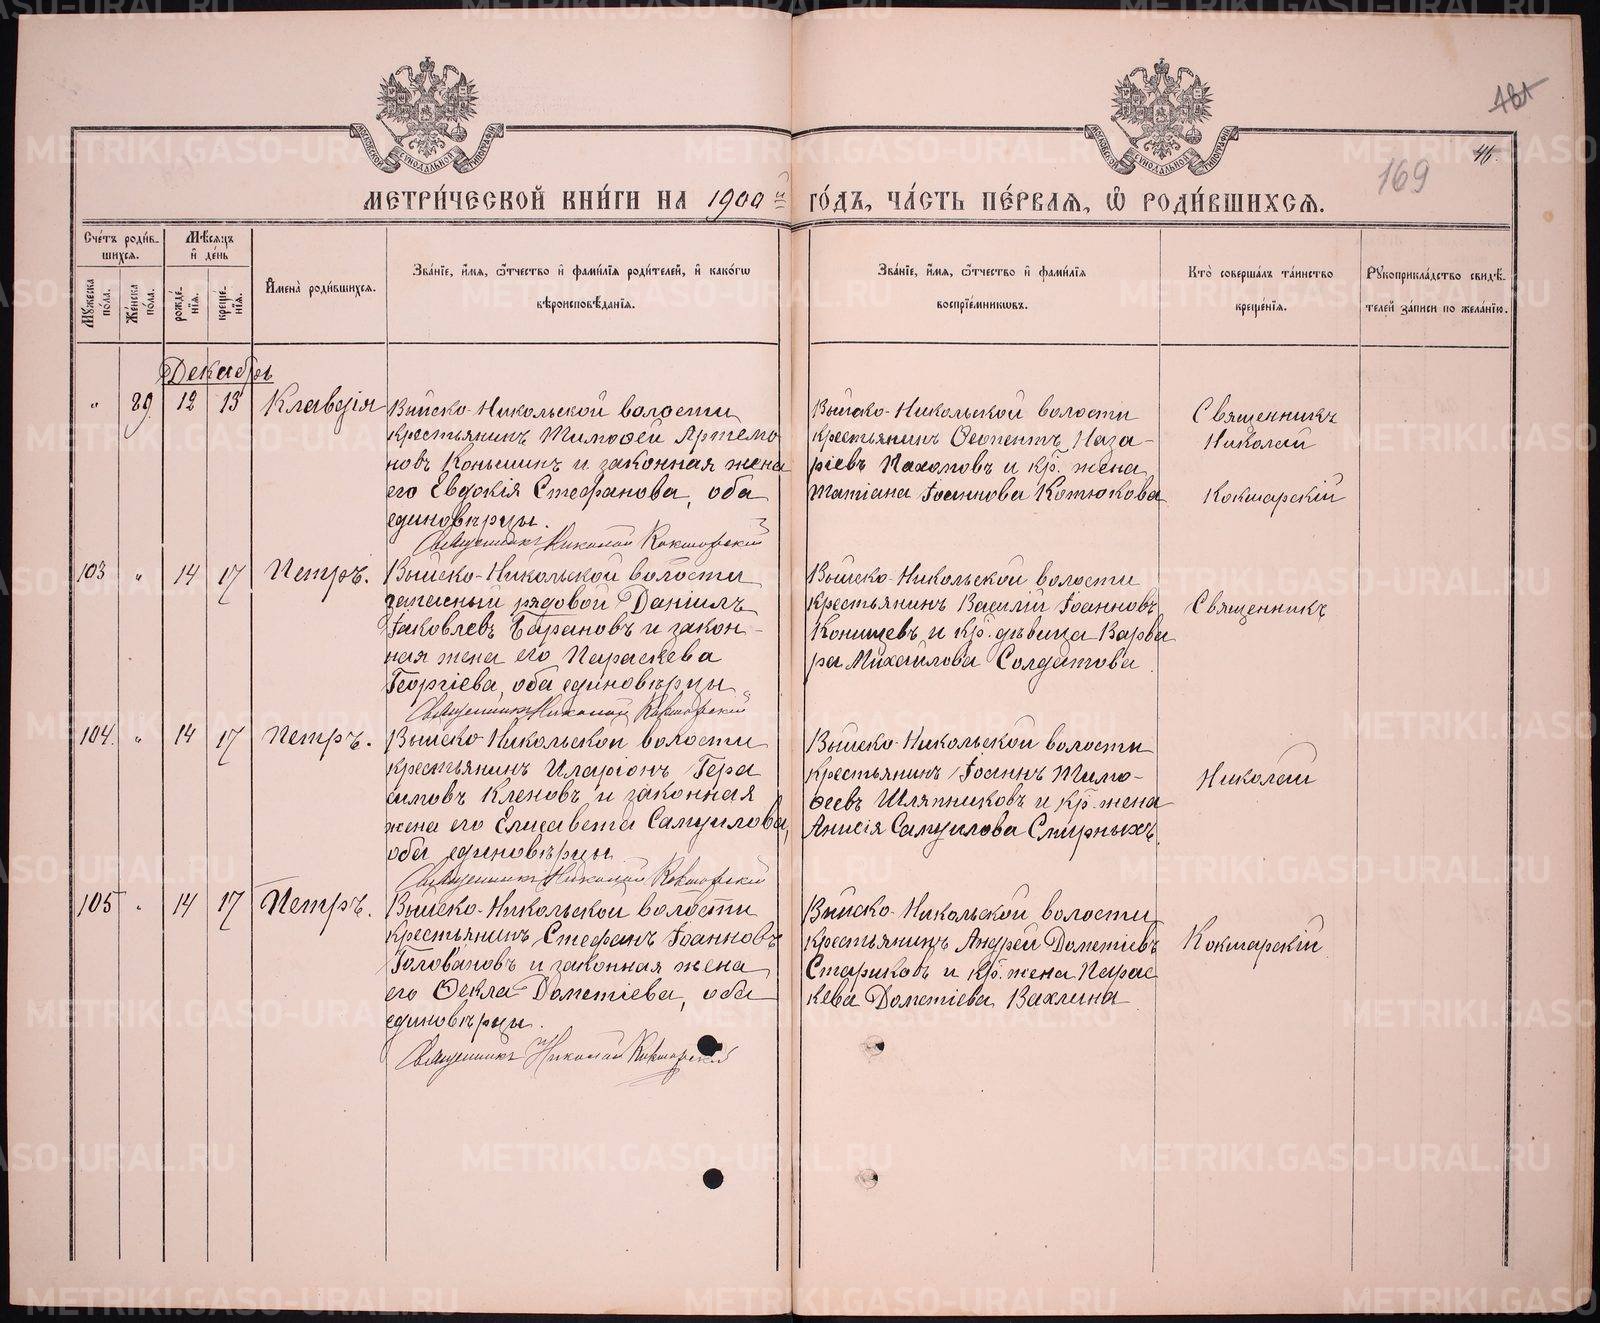 181
46.
169
МОСКОВСКОЙ СѴНОДАЛЬНОЙ ТИПОГРАФІИ
МОСКОВСКОЙ СѴНОДАЛЬНОЙ ТИПОГРАФІИ
МЕТРИ́ЧЕСКОЙ КНИ́ГИ НА 1900й ГО́ДЪ, ЧА́СТЬ ПЕ́РВАЯ, Ѡ҆ РОДИ́ВШИХСЯ.
Сче́тъ роди́в-
шихся.
Мѣ́сяцъ
и҆ де́нь
Мꙋ́жеска
по́ла.
Же́нска
по́ла.
рожде́-
нїя.
креще́-
нїя.
И҆мена̀ роди́вшихся.
Зва́нїе, и҆́мя, ѻ҆́тчество и҆ фами́лїя роди́телей, и҆ како́гѡ
вѣроисповѣ́данїя.
Зва́нїе, и҆́мя, ѻ҆́тчество и҆ фами́лїя
воспрїе́мникѡвъ.
Кто̀ соверша́лъ та́инство
креще́нїя.
Рꙋкоприкла́дство свидѣ́-
телей за́писи по жела́нїю.
Декабрь
" 89. 12 13 Клавдія
Выйско-Никольской волости
крестьянинъ Тимоѳей Артемо
новъ Коньшинъ и законная жена
его Евдокія Стефанова, оба
единовѣрцы.
Священникъ Николай Кокшарскій
Выйско-Никольской волости
крестьянинъ Ѳеопентъ Наза-
ріевъ Пахомовъ и кр. жена
Татіана Іоаннова Котюкова
Священникъ
Николай
Кокшарскій
103 " 14 17 Петръ.
Выйско-Никольской волости
запасный рядовой Даніилъ
Іаковлевъ Барановъ и закон-
ная жена его Параскева
Георгіева, оба единовѣрцы.
Священникъ Николай Кокшарскій
Выйско-Никольской волости
крестьянинъ Василій Іоанновъ
Конищевъ и кр. дѣвица Варва
ра Михайлова Солдатова.
Священникъ
104. " 14 17 Петръ.
Выйско-Никольской волости
крестьянинъ Иларіонъ Гера
симовъ Кленовъ и законная
жена его Елисавета Самуилова,
оба единовѣрцы
Священникъ Николай Кокшарскій
Выйско-Никольской волости
крестьянинъ Іоаннъ Тимо-
ѳеевъ Шляпниковъ и кр. жена
Анисія Самуилова Смирныхъ.
Николай
105 " 14 17 Петръ.
Выйско-Никольской волости
крестьянинъ Стефанъ Іоанновъ
Головановъ и законная жена
его Ѳекла Дометіева, оба
единовѣрцы.
Священникъ Николай Кокшарскій
Выйско-Никольской волости
крестьянинъ Андрей Дометіевъ
Стариковъ и кр. жена Парас
кева Дометіева Вахлина
Кокшарскій